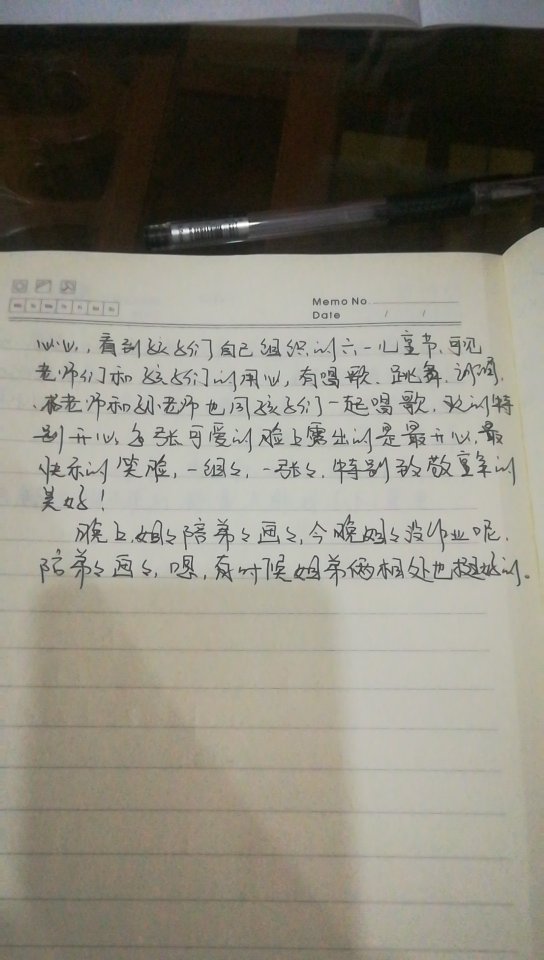 Memo No
Date / /
心心,看到孩子们自己组织的六一儿童节,可见
老师们和孩子们的用心,有唱歌、跳舞、朗诵,
老师和孙老师也同孩子们一起唱歌,玩的特
别开心,每张可爱的脸上露出的是最开心,最
快乐的笑脸,一组々,一张々,特别致敬童年的
美好!
晚上,姐々陪弟々画々,今晚姐々没作业呢,
陪弟々画々,嗯,有时候姐弟俩相处也挺好的。